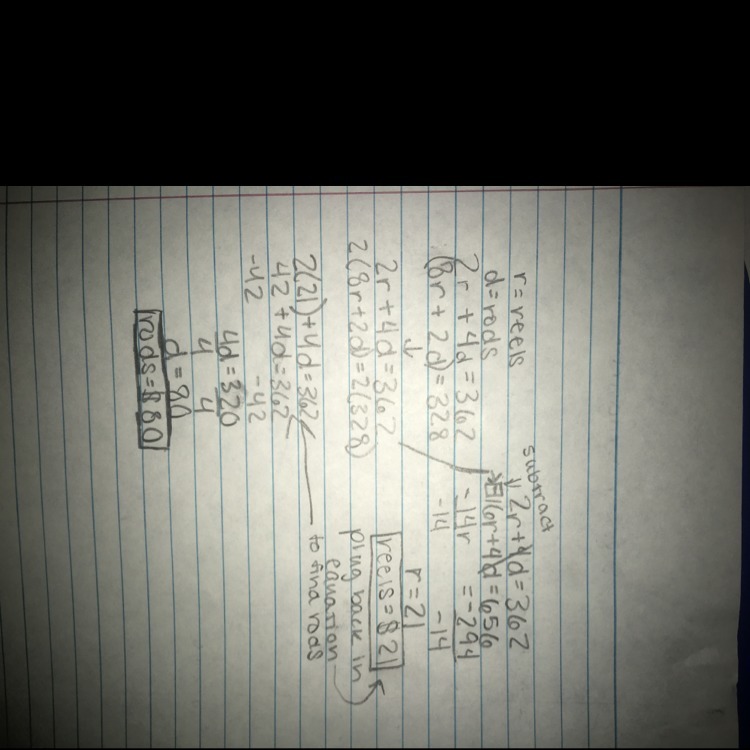 r = reels
d = rods
2r + 4d = 362
(8r + 2d) = 328
↓
2r + 4d = 362
2(8r + 2d) = 2(328)
subtract
↓ 2r + 4d = 362
16r + 4d = 656
-14r = -294
-14 -14
r = 21
reels = $21
plug back in
equation
to find rods
2(21) + 4d = 362
42 + 4d = 362
-42 -42
4d = 320
4 4
d = 80
rods = $80